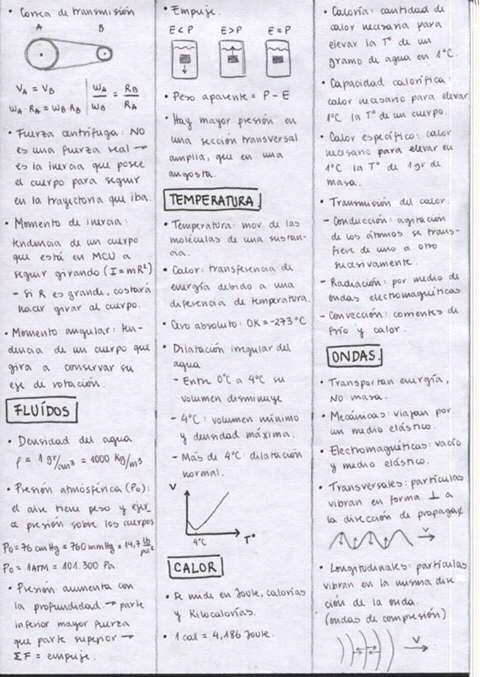 • Correa de transmisión
A B
VA = VB
WA . RA = WB . RB
WA/WB = RB/RA
• Fuerza centrífuga: NO
es una fuerza real →
es la inercia que posee
el cuerpo para seguir
en la trayectoria que iba.
• Momento de inercia:
tendencia de un cuerpo
que está en MCU a
seguir girando (I = mR²)
- Si R es grande, costará
hacer girar al cuerpo.
• Momento angular: ten-
dencia de un cuerpo que
gira a conservar su
eje de rotación.
FLUÍDOS
• Densidad del agua
ρ = 1 gr/cm³ = 1000 Kg/m³
• Presión atmósférica (Po):
el aire tiene peso y ejer
ce presión sobre los cuerpos
Po = 76 cmHg = 760 mmHg = 14,7 lb/pul²
Po = 1 ATM = 101.300 Pa
• Presión aumenta con
la profundidad → parte
inferior mayor fuerza
que parte superior →
ΣF = empuje.
• Empuje.
E<P E>P E=P
• Peso aparente = P - E
• Hay mayor presión en
una sección transversal
amplia, que en una
angosta.
TEMPERATURA
• Temperatura: mov. de las
moléculas de una sustan-
cia.
• Calor: transferencia de
energía debido a una
diferencia de temperatura.
• Cero absoluto: 0K = -273°C
• Dilatación irregular del
agua
- Entre 0°C a 4°C su
volumen disminuye
- 4°C: volumen mínimo
y densidad máxima.
- Más de 4°C: dilatación
normal.
V
4°C T°
CALOR
• Se mide en Joule, calorías
y Kilocalorías.
• 1 cal = 4,186 Joule.
• Caloría: cantidad de
calor necesaria para
elevar la T° de un
gramo de agua en 1°C.
• Capacidad calorífica:
calor necesario para elevar
1°C la T° de un cuerpo.
• Calor específico: calor
necesario para elevar en
1°C la T° de 1 gr de
masa.
• Transmisión del calor.
- Conducción: agitación
de los átomos se trans-
fiere de uno a otro
sucesivamente.
- Radiación: por medio de
ondas electromagnéticas
- Convección: corrientes de
frío y calor.
ONDAS
• Transportan energía,
No masa.
• Mecánicas: viajan por
un medio elástico.
• Electromagnéticas: vacío
y medio elástico.
• Transversales: partículas
vibran en forma ⊥ a
la dirección de propagac
V
• Longitudinales: partículas
vibran en la misma dire
cción de la onda.
(ondas de compresión)
V